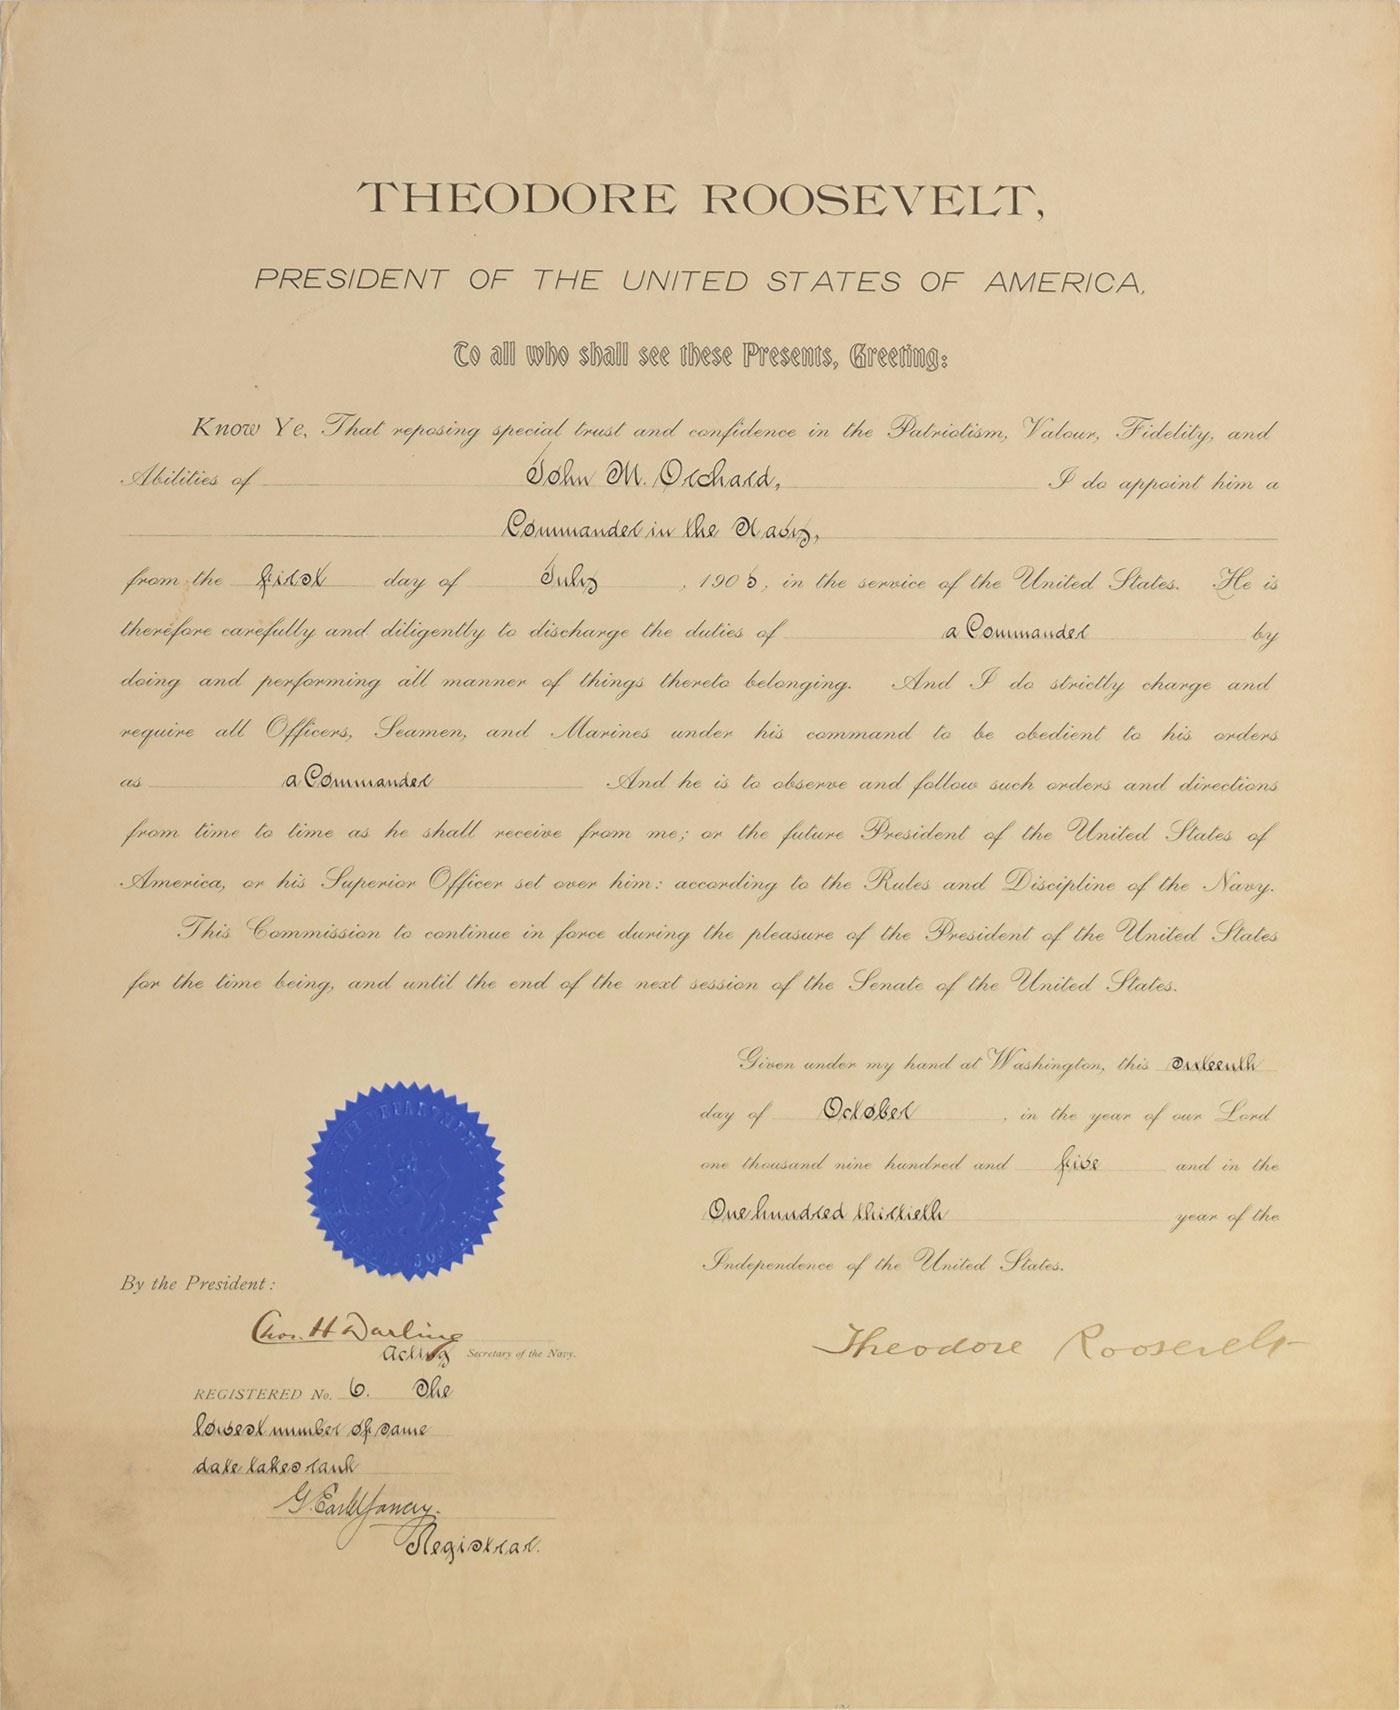 THEODORE ROOSEVELT,
PRESIDENT OF THE UNITED STATES OF AMERICA.
To all who shall see these Presents, Greeting:
Know Ye, That reposing special trust and confidence in the Patriotism, Valour, Fidelity, and
Abilities of John M. Orchard, I do appoint him a
Commander in the Navy,
from the first day of July, 1905, in the service of the United States. He is
therefore carefully and diligently to discharge the duties of a Commander by
doing and performing all manner of things thereto belonging. And I do strictly charge and
require all Officers, Seamen, and Marines under his command to be obedient to his orders
as a Commander And he is to observe and follow such orders and directions
from time to time as he shall receive from me; or the future President of the United States of
America, or his Superior Officer set over him: according to the Rules and Discipline of the Navy.
This Commission to continue in force during the pleasure of the President of the United States
for the time being, and until the end of the next session of the Senate of the United States.
Given under my hand at Washington, this sixteenth
day of October, in the year of our Lord
one thousand nine hundred and five and in the
One hundred thirtieth year of the
Independence of the United States.
By the President:
Chas. H Darling
Acting Secretary of the Navy.
Theodore Roosevelt
REGISTERED No. 6. The
lowest number of same
date takes rank
Registrar.